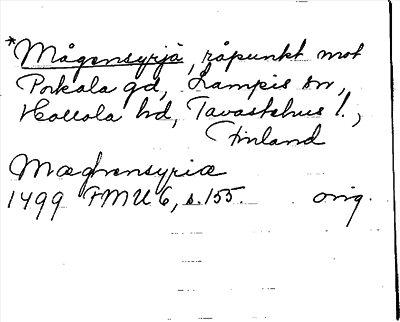 *Mågensyrjä, råpunkt mot
Porkala gd, Lampis sn,
Hollola hd, Tavastehus l.,
Finland
Maghensyria
1499 FMU 6, s. 155. orig.